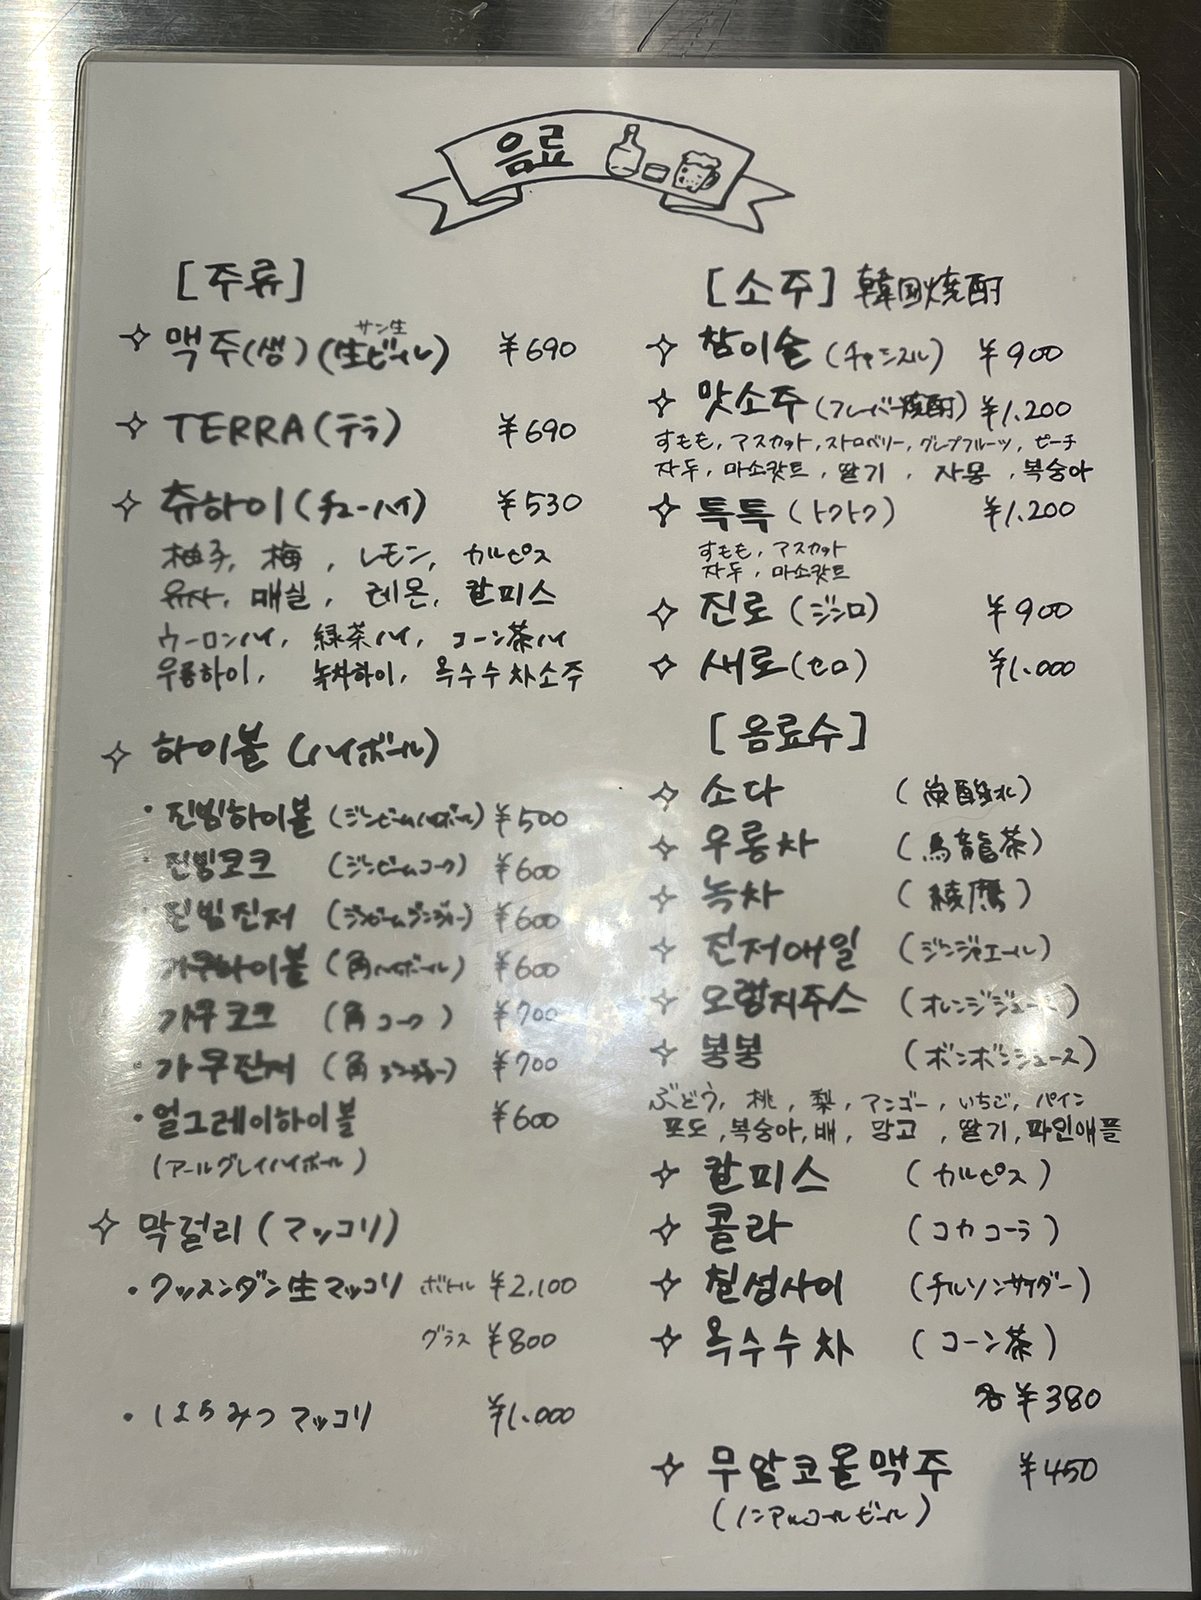 음료
[주류]
맥주(생)(生ビール) ¥690
サン生
TERRA(テラ) ¥690
츄하이(チューハイ) ¥530
柚子, 梅, レモン, カルピス
유자, 매실, 레몬, 칼피스
ウーロンハイ, 緑茶ハイ, コーン茶ハイ
우롱하이, 녹차하이, 옥수수차소주
하이볼(ハイボール)
・진빔하이볼(ジンビームハイボール) ¥500
・진빔코크(ジンビームコーク) ¥600
・진빔진저(ジンビームジンジャー) ¥600
・가쿠하이볼(角ハイボール) ¥600
・가쿠코크(角コーク) ¥700
・가쿠진저(角ジンジャー) ¥700
・얼그레이하이볼 ¥600
(アールグレイハイボール)
막걸리(マッコリ)
・クッスンダン生マッコリ ボトル ¥2,100
グラス ¥800
・はちみつマッコリ ¥1,000
[소주] 韓国焼酎
참이슬(チャミスル) ¥900
맛소주(フレーバー焼酎) ¥1,200
すもも, マスカット, ストロベリー, グレープフルーツ, ピーチ
자두, 마스캇트, 딸기, 자몽, 복숭아
톡톡(トクトク) ¥1,200
すもも, マスカット
자두, 마스캇트
진로(ジンロ) ¥900
새로(セロ) ¥1,000
[음료수]
소다 (炭酸水)
우롱차 (烏龍茶)
녹차 (綾鷹)
진저애일 (ジンジャエール)
오렝지주스 (オレンジジュース)
봉봉 (ボンボンジュース)
ぶどう, 桃, 梨, マンゴー, いちご, パイン
포도, 복숭아, 배, 망고, 딸기, 파인애플
칼피스 (カルピス)
콜라 (コカコーラ)
칠성사이 (チルソンサイダー)
옥수수차 (コーン茶)
各¥380
무알코올맥주 ¥450
(ノンアルコールビール)